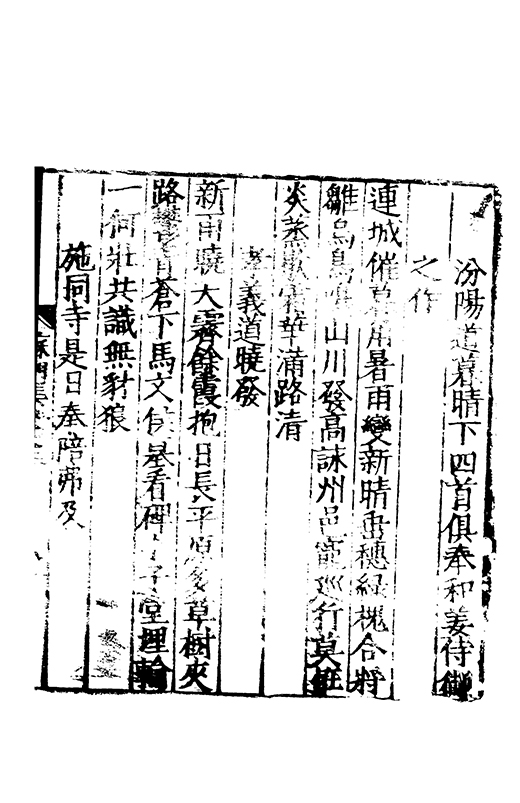 汾陽道暮晴下四首俱奉和姜侍御
之作
連城催暮角暑雨變新晴岳穗綠槐合將
雛烏鳥 山川發高詠州邑寵巡行莫
炎蒸 華滿路清
孝義道曉發
新雨曉大霽餘霞抱日長平原多草樹夾
路 青蒼下馬文侯墓看碑 子堂埋輪
一何壯共識無豺狼
施同寺是日奉陪弗及